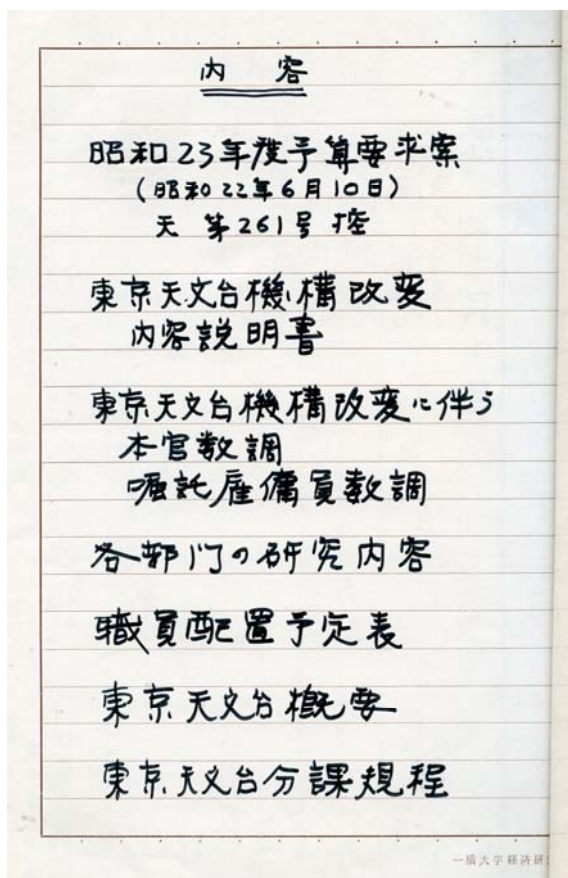 内 容
昭和23年度予算要求案
(昭和22年6月10日)
天 第261号 控
東京天文台機構改変
内容説明書
東京天文台機構改変に伴う
本官数調
嘱託雇傭員数調
各部门の研究内容
職員配置予定表
東京天文台概要
東京天文台分課規程
一橋大学経済研